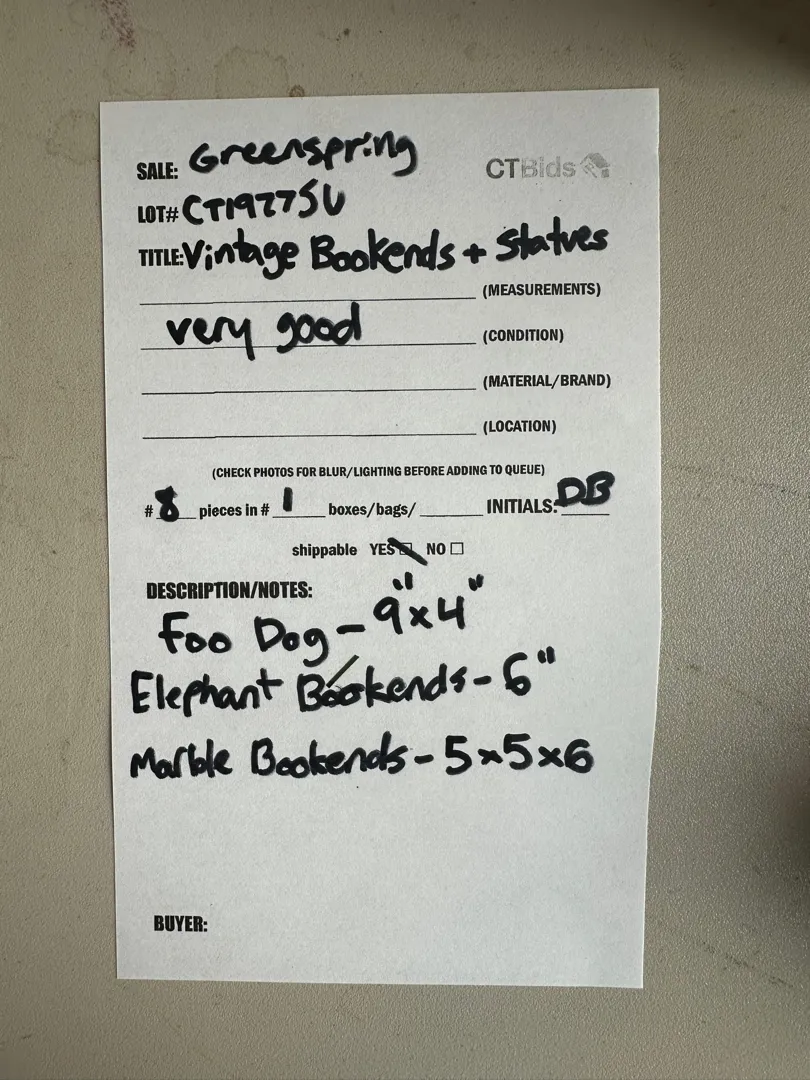 SALE: Greenspring CTBids
LOT# CT1977SU
TITLE: Vintage Bookends + Statues
(MEASUREMENTS)
very good (CONDITION)
(MATERIAL/BRAND)
(LOCATION)
(CHECK PHOTOS FOR BLUR/LIGHTING BEFORE ADDING TO QUEUE)
# 8 pieces in # 1 boxes/bags/ INITIALS: DB
shippable YES NO
DESCRIPTION/NOTES:
Foo Dog - 9"x4"
Elephant Bookends - 6"
Marble Bookends - 5x5x6
BUYER: